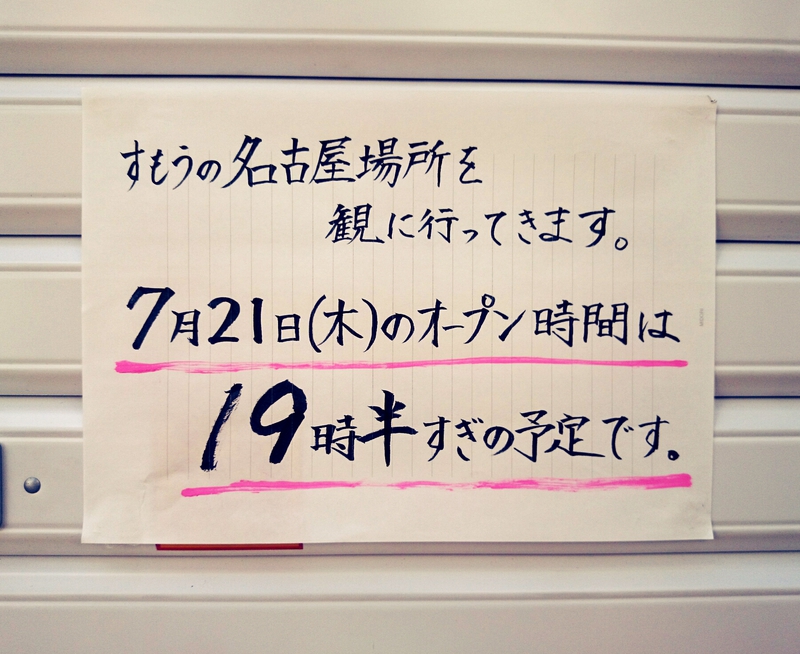 すもうの名古屋場所を
観に行ってきます。
7月21日(木)のオープン時間は
19時半すぎの予定です。